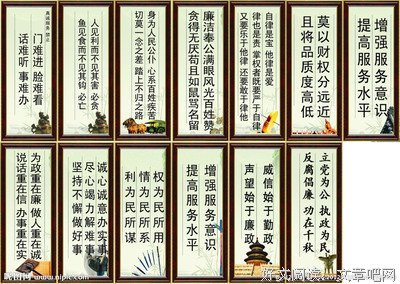 真诚服务 禁止
门难进 脸难看
话难听 事难办
人见利而不见其害 必贪
鱼见食而不见其钩 必亡
身为人民公仆 心系百姓疾苦
切莫一念之差 踏上不归之路
廉洁奉公满眼风光百姓赞
贪得无厌苟且如鼠骂名留
自律是宝 他律是爱
律也是贵 掌权者既要严于自律
又要乐于他律 还要敢于律他
莫以财权分远近
且将品质度高低
增强服务意识
提高服务水平
为政重在廉 做人重在诚
说话重在信 办事重在实
诚心诚意办实事
尽心竭力解难事
坚持不懈做好事
权为民所用
情为民所系
利为民所谋
增强服务意识
提高服务水平
威信始于勤政
声望始于廉政
立党为公 执政为民
反腐倡廉 功在千秋
昵图网 www.nipic.com
好文阅读 文章吧网